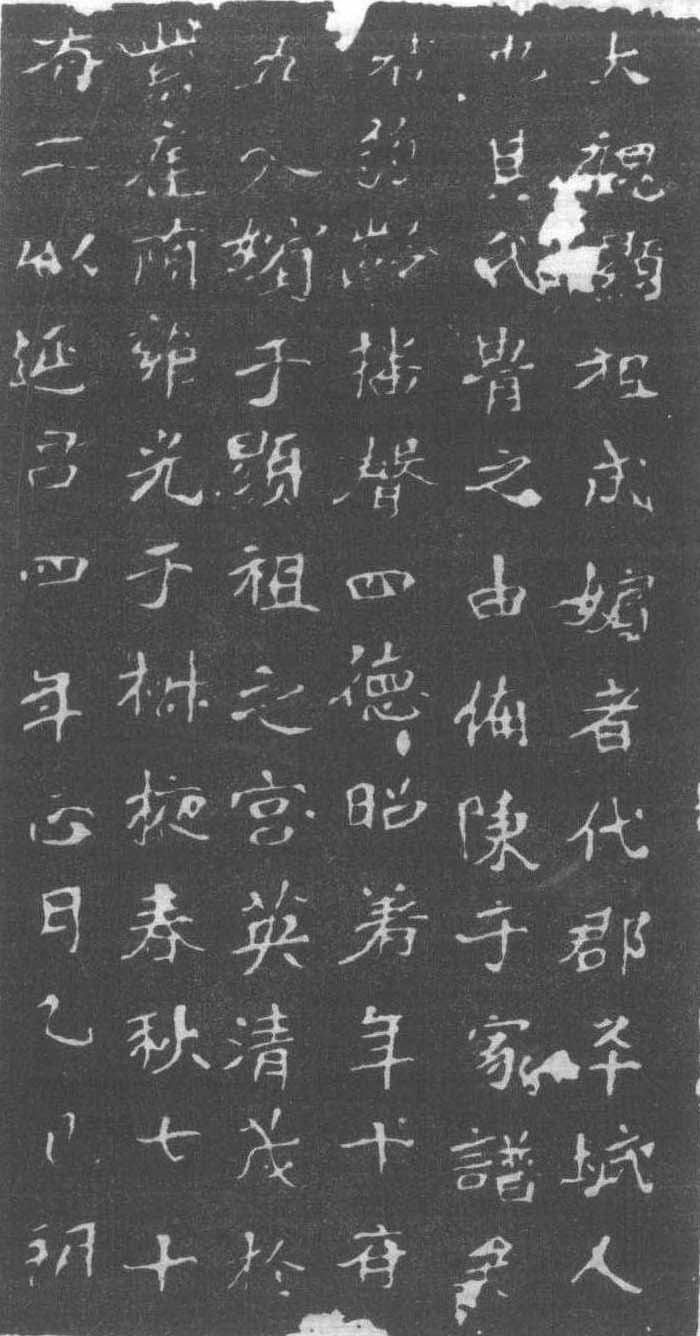 大魏顯祖成嬪者代郡平城人
也其代胄之由備陳于家譜
弱齡播聲四德昭著年十有
九入嬪于顯祖之宮英清茂於
紫庭蘭雍光于椒掖春秋七十
有二以延昌四年正月乙巳朔